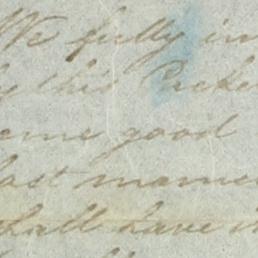 We fully in
by this Packe
some good
last manne
shall have i